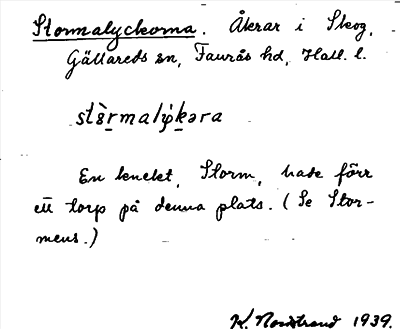 Stormalyckorna. Åkrar i Skog,
Gällareds sn, Faurås hd, Hall. l.
stòrmalýkəra
En knekt, Storm, hade förr
ett torp på denna plats. (Se Stor-
mens.)
K. Nordstrand 1939.